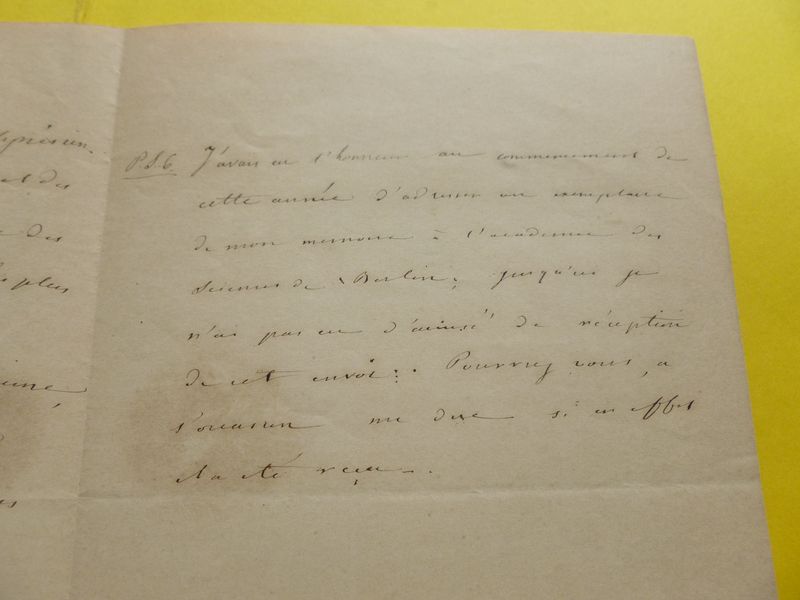 P.S. J'avais eu l'honneur au commencement de
cette année d'adresser un exemplaire
de mon mémoire à l'academie des
Sciences de Berlin; jusqu'ici je
n'ai pas eu d'accusé de réception
de cet envoi. Pourriez vous, a
l'occasion me dire si en effet
il a été reçu.
et des
des
plus